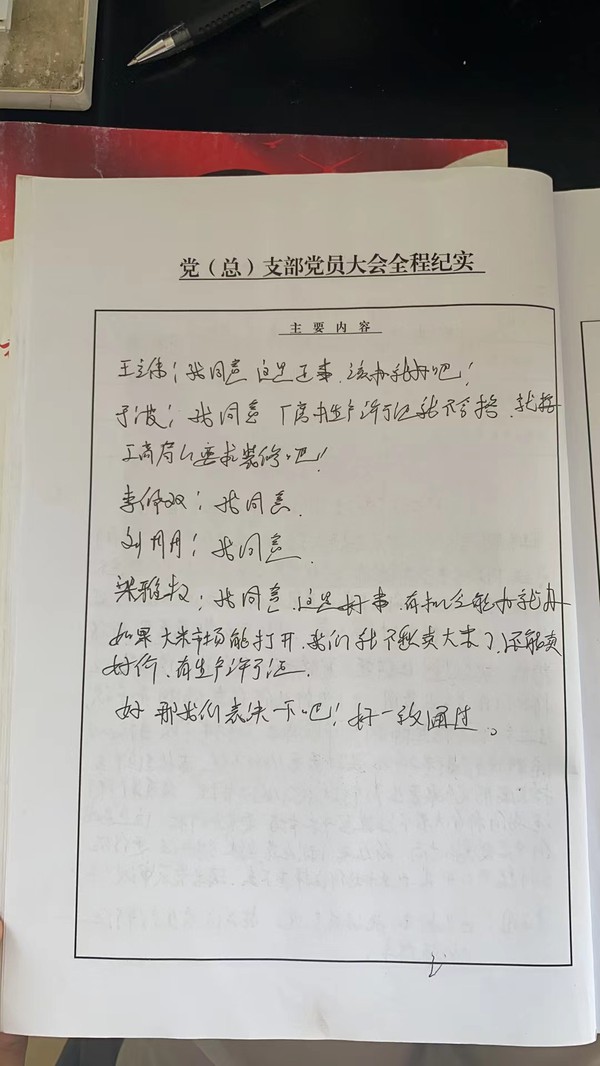 党（总）支部党员大会全程纪实
主要内容
王立伟：我同意 这是正事、该办就办吧！
于波：我同意 厂房生产许可证我不含糊、就按
工商局的要求装修吧！
李佩双：我同意.
刘丹丹：我同意.
梁雅敏：我同意、这是好事、有机会能办就办
如果大米市场能打开、我们就不愁卖大米了、还能卖
好价、有生产许可证.
好 那我们表决一下吧！好一致通过。